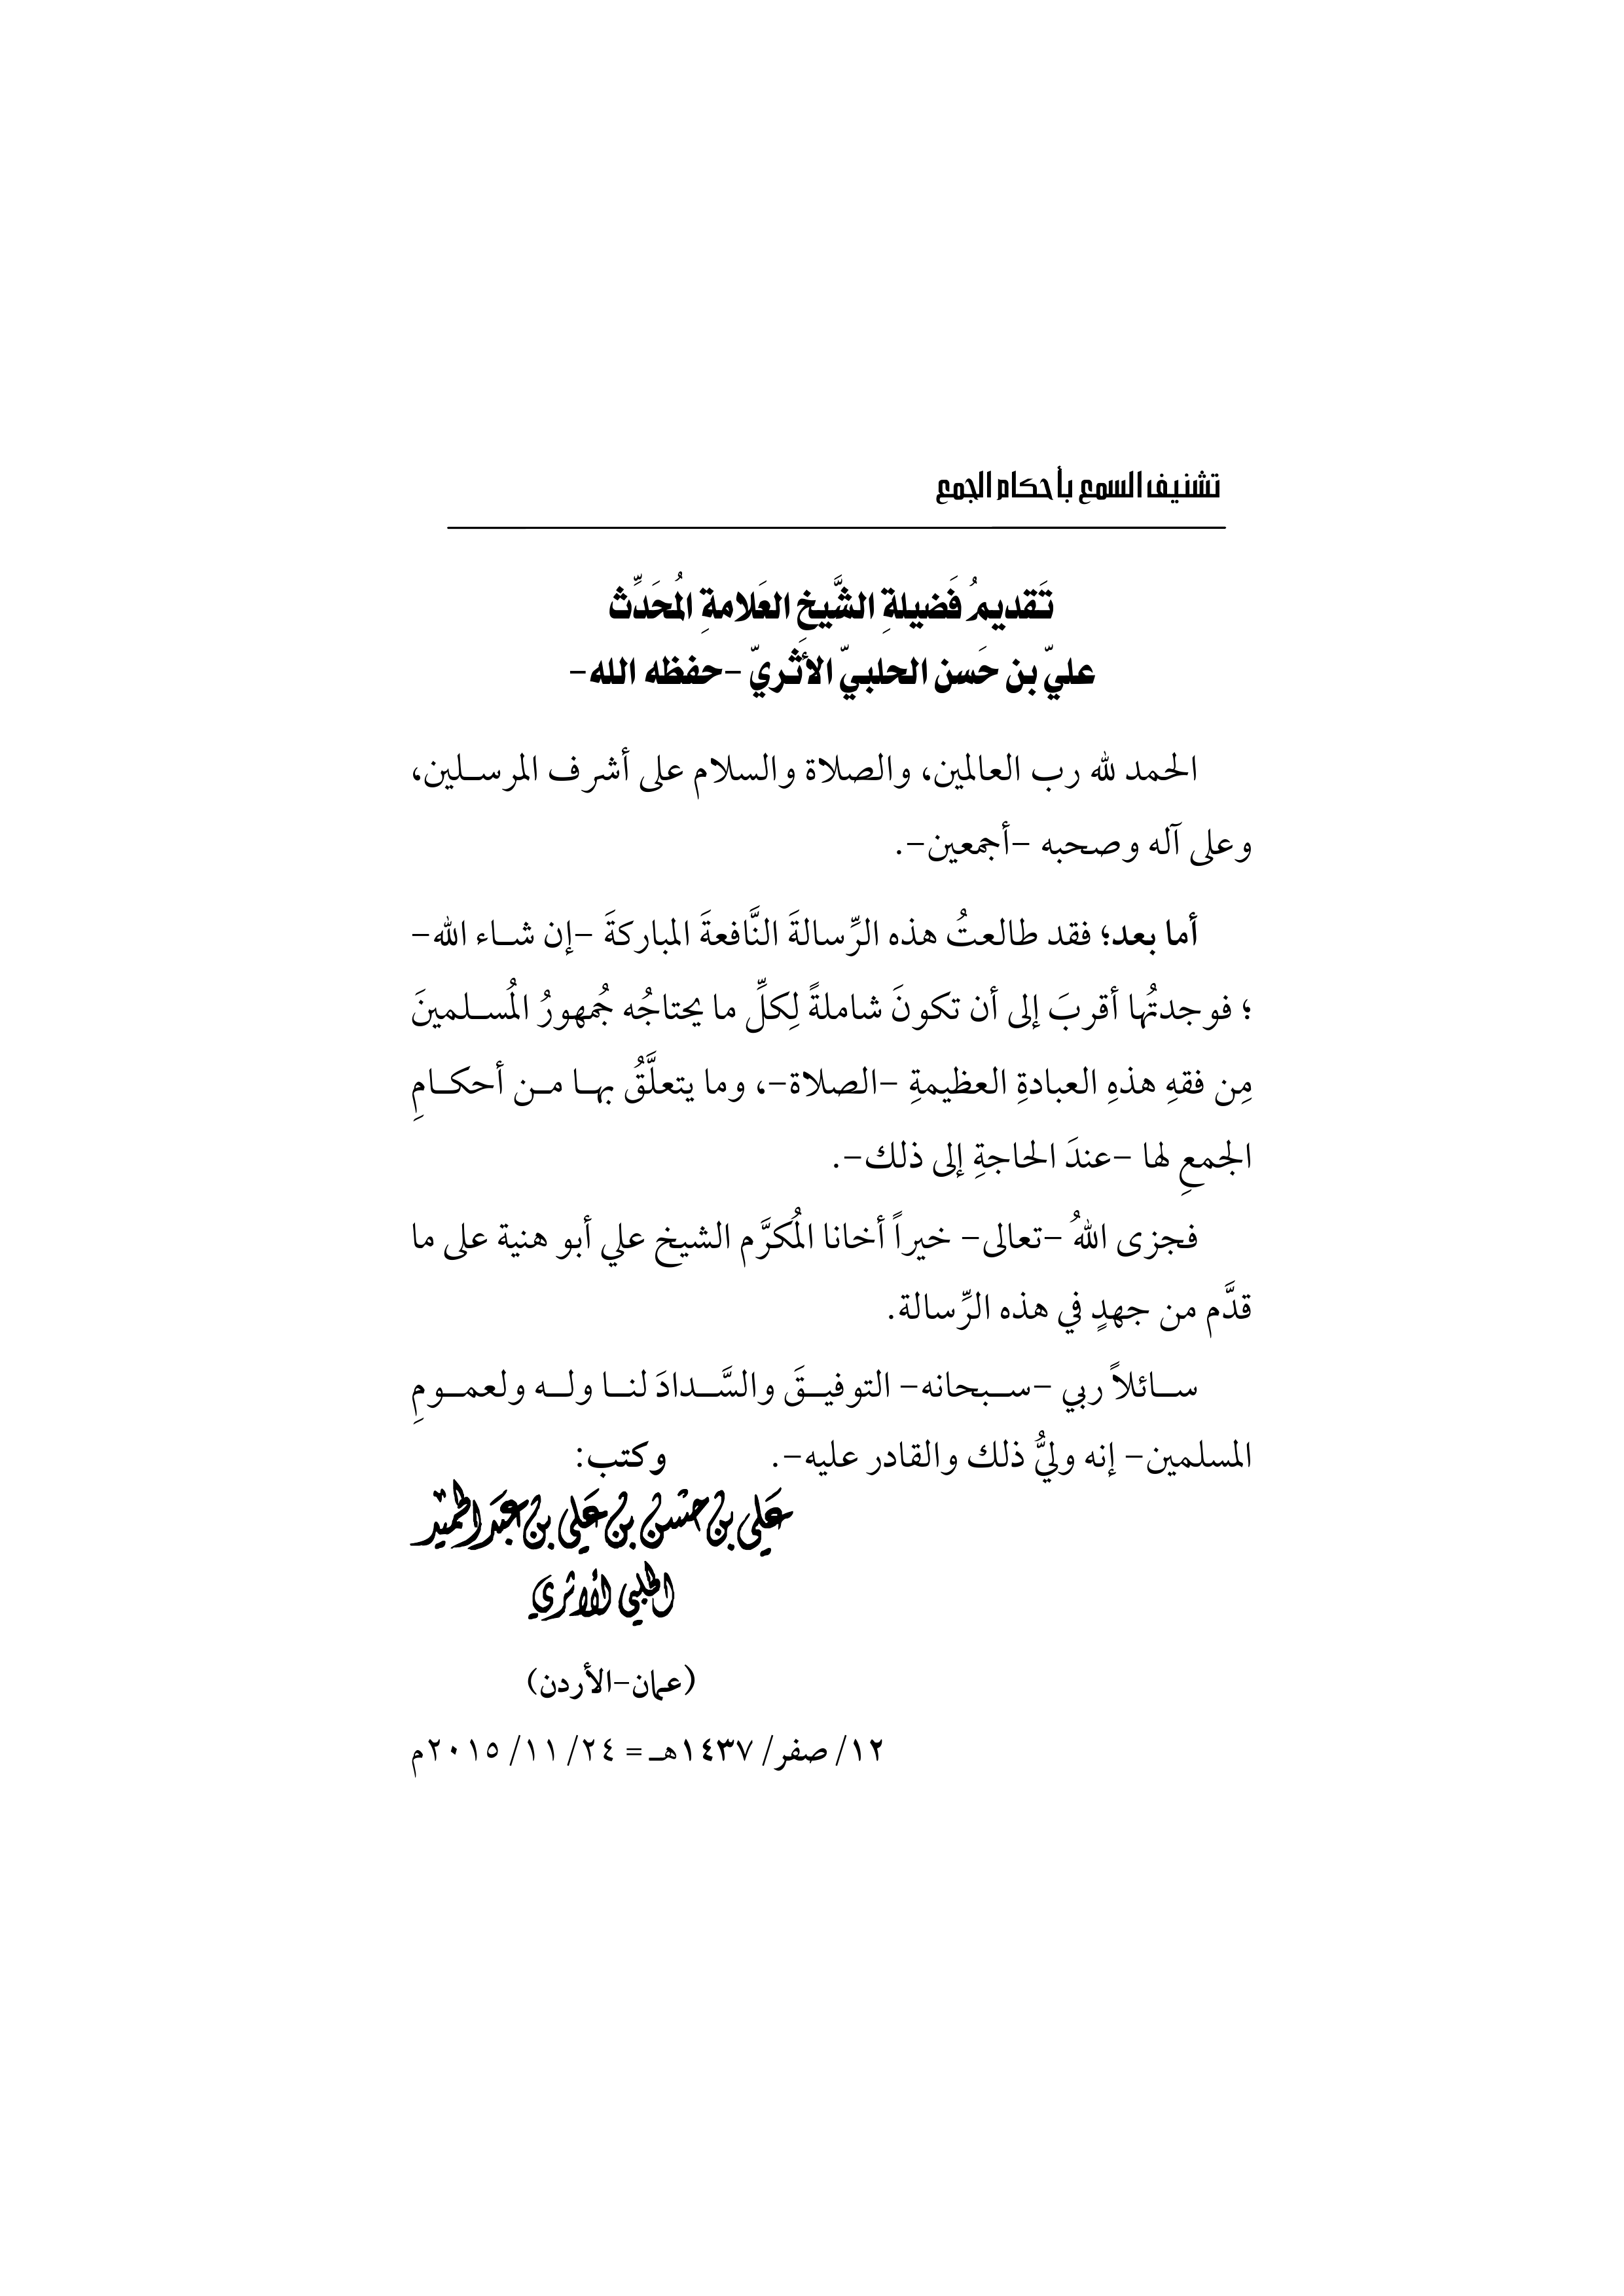 تشنيف السمع بأحكام الجمع
تَقديمُ فَضيلةِ الشَّيخِ العَلامةِ المُحَدِّث
عليّ بن حَسن الحلبيّ الأثَريّ -حفظه الله-
الحمد لله رب العالمين، والصلاة والسلام على أشرف المرسلين،
وعلى آله وصحبه -أجمعين-.
أما بعد؛ فقد طالعتُ هذه الرِّسالةَ النَّافعةَ المباركةَ -إن شاء الله-
؛ فوجدتُها أقربَ إلى أن تكونَ شاملةً لِكلِّ ما يحتاجُه جُمهورُ المُسلمينَ
مِن فقهِ هذهِ العبادةِ العظيمةِ -الصلاة-، وما يتعلَّقُ بها من أحكامِ
الجمعِ لها -عندَ الحاجةِ إلى ذلك-.
فجزى اللهُ -تعالى- خيراً أخانا المُكرَّم الشيخ علي أبو هنية على ما
قدَّم من جهدٍ في هذه الرِّسالة.
سائلاً ربي -سبحانه- التوفيقَ والسَّدادَ لنا وله ولعمومِ
المسلمين- إنه وليُّ ذلك والقادر عليه-. وكتب:
عَلي بن حسَن بن عَلي بن عبَد الحميْد
الحلبي الأثري
(عمان-الأردن)
١٢/ صفر/ ١٤٣٧هـ = ٢٤/ ١١/ ٢٠١٥م